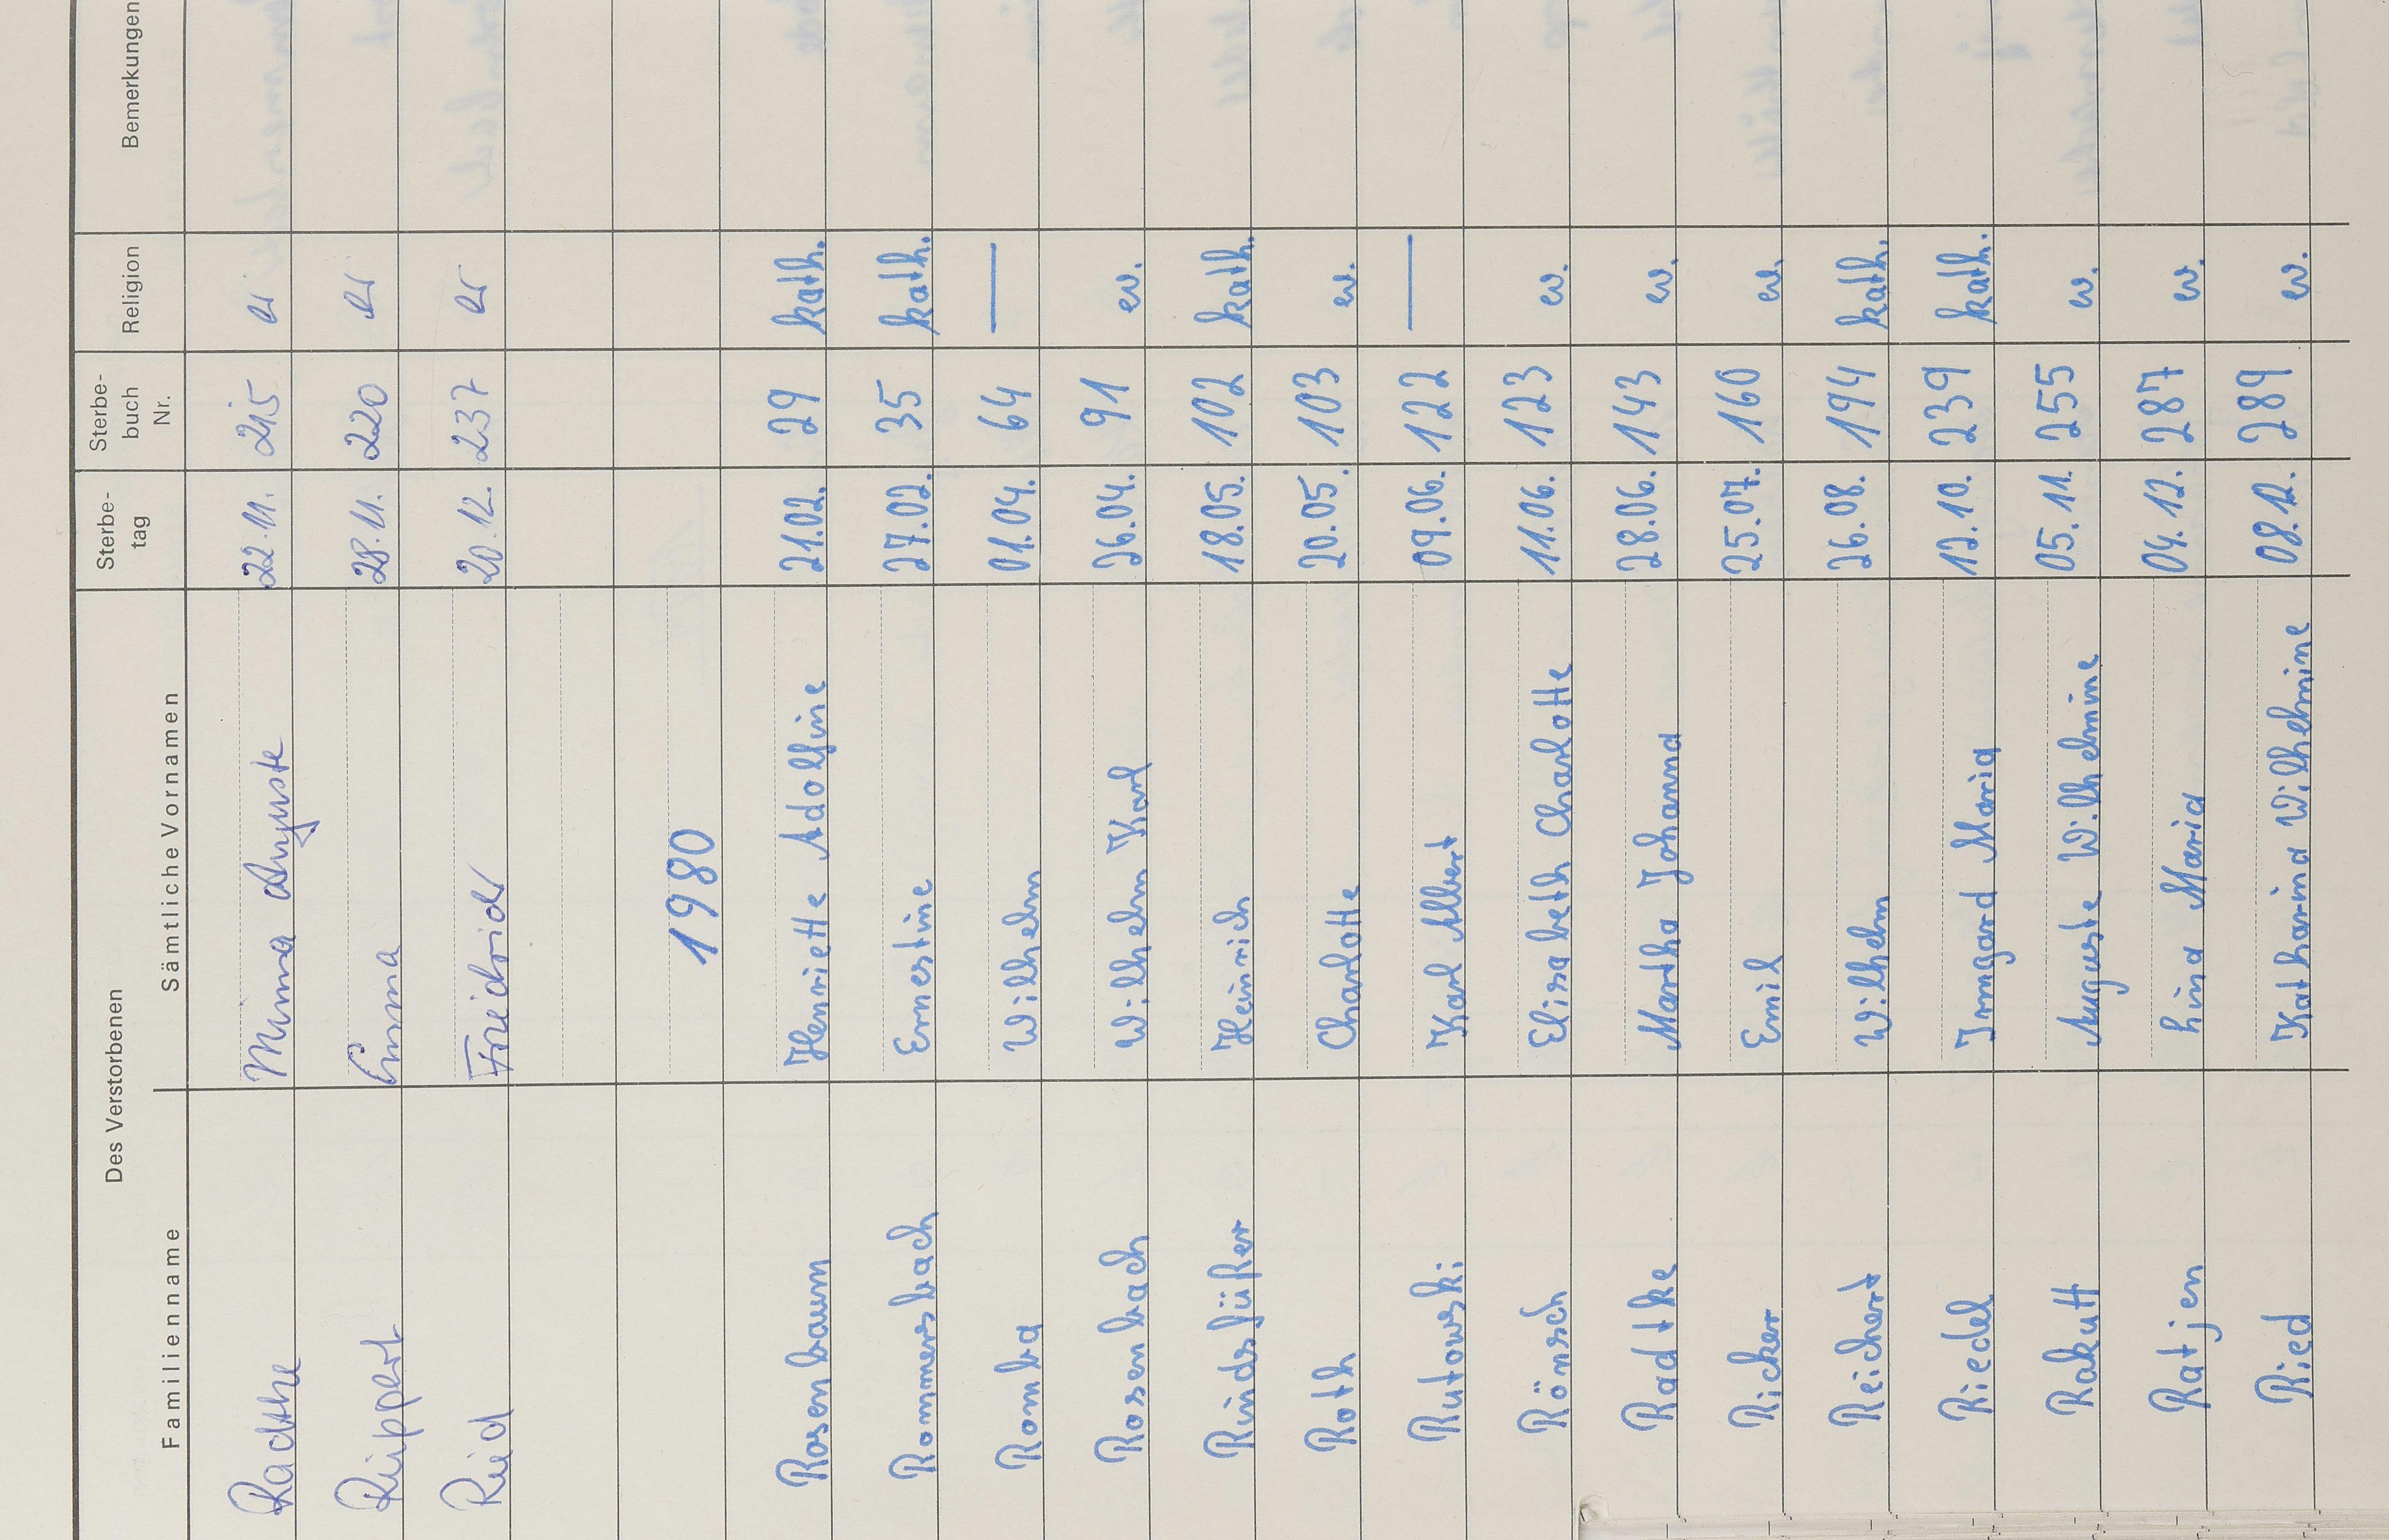 Des Verstorbenen
Familienname Sämtliche Vornamen Sterbe-tag Sterbe-buch Nr. Religion Bemerkungen
Radtke Minna Auguste 22.11. 215 ev
Rüppert Emma 28.11. 220 ev
Ried Friedrich 20.12. 237 ev
1980
Rosenbaum Henriette Adolfine 21.02. 29 kath.
Rommersbach Ernestine 27.02. 35 kath.
Romba Wilhelm 01.04. 64 —
Rosenbach Wilhelm Karl 26.04. 91 ev.
Rindsfüßer Heinrich 18.05. 102 kath.
Roth Charlotte 20.05. 103 ev.
Rutowski Karl Albert 09.06. 122 —
Rönsch Elisabeth Charlotte 11.06. 123 ev.
Radtke Martha Johanna 28.06. 143 ev.
Ricker Emil 25.07. 160 ev.
Reichert Wilhelm 26.08. 194 kath.
Riedel Irmgard Maria 12.10. 239 kath.
Rakutt Auguste Wilhelmine 05.11. 255 ev.
Ratjen Lina Maria 04.12. 287 ev.
Ried Katharina Wilhelmine 08.12. 289 ev.